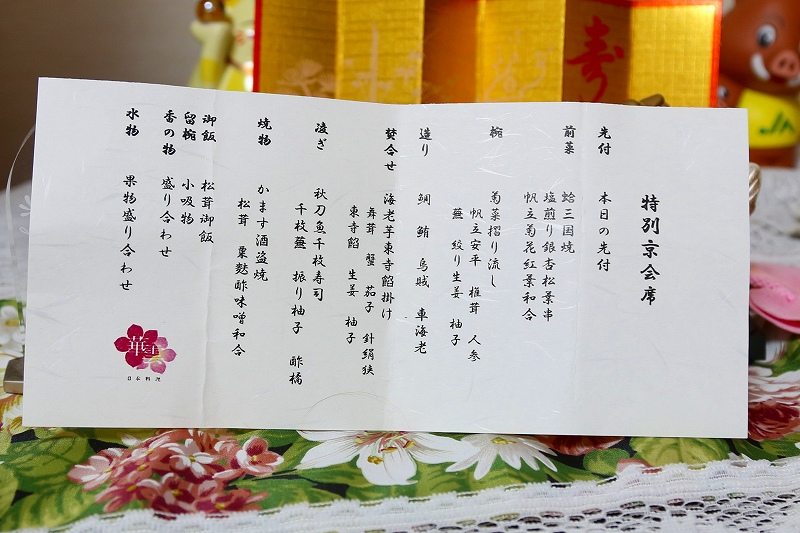 特別京会席
先付　本日の先付
前菜　蛤三国焼
塩煎り銀杏松葉串
帆立菊花紅葉和合
椀　菊菜摺り流し
帆立安平　椎茸　人参
蕪　絞り生姜　柚子
造り　鯛　鮪　烏賊　車海老
焚合せ　海老芋東寺餡掛け
舞茸　蟹　茄子　針絹狭
東寺餡　生姜　柚子
凌ぎ　秋刀魚千枚寿司
千枚蕪　振り柚子　酢橘
焼物　かます酒盗焼
松茸　粟麩酢味噌和合
御飯　松茸御飯
留椀　小吸物
香の物　盛り合わせ
水物　果物盛り合わせ
日本料理
寿
JA